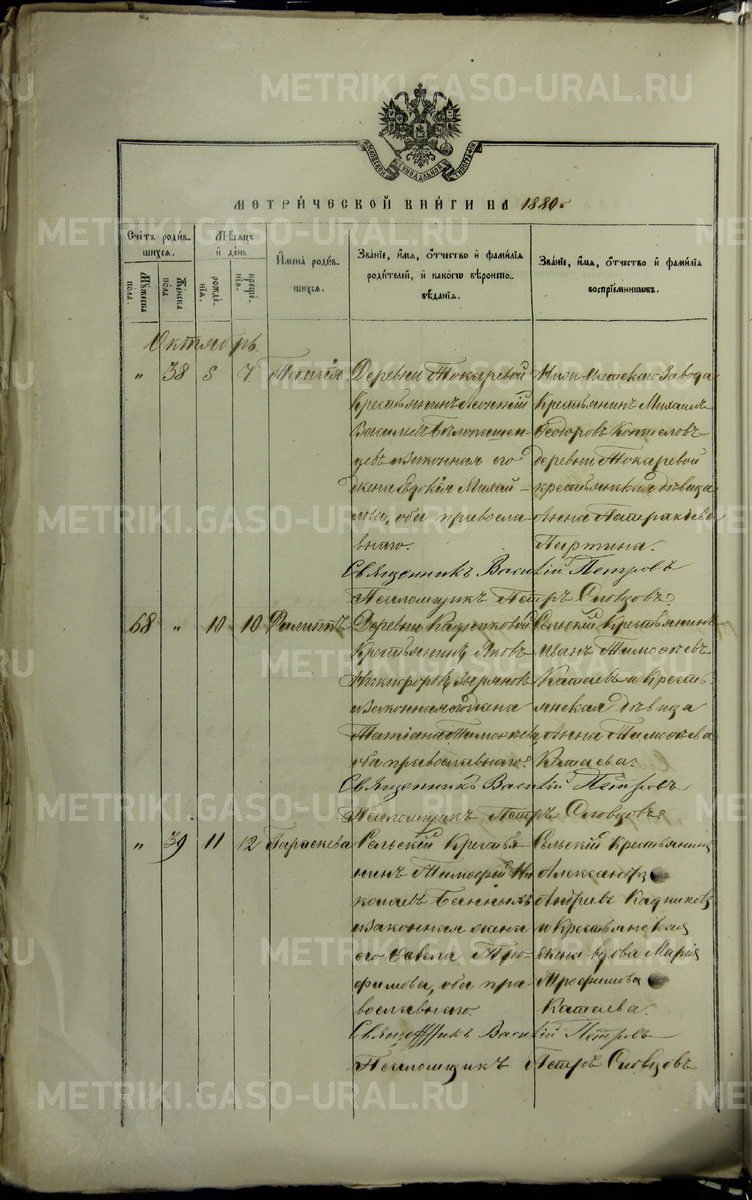 METRIKI.GASO-URAL.RU
МОСКОВСКОЙ СѴНОДАЛЬНОЙ ТИПОГРАФІИ
МЕТРИЧЕСКОЙ КНИГИ НА 1880 г
Счетъ родив-
шихся.
Мужеска пола.
Женска пола.
Мѣсяцъ
и день
рожде-
нія.
креще-
нія.
Имена родив-
шихся.
Званіе, имя, отчество и фамилія
родителей, и какого вѣроиспо-
вѣданія.
Званіе, имя, отчество и фамилія
воспріемниковъ.
Октябрь
" 38 5 7
Деревни Токаревой
Крестьянинъ
Васильевъ
и законная его
жена Михай-
лова, оба правосла-
внаго.
Завода
Крестьянинъ Михаилъ
Ѳеодоровъ
деревни Токаревой
крестьянская дѣвица
Анна
Партина.
Священникъ Василій Петровъ
Псаломщикъ Петръ Словцовъ
68 " 10 10 Филиппъ
Деревни
Крестьянинъ Яковъ
Никифоровъ Зыряновъ
и законная жена
Татіана Тимоѳеева
оба православнаго.
Сельскій Крестьянинъ
Иванъ Тимоѳеевъ
Катаевъ и Кресть-
янская дѣвица
Анна Тимоѳеева
Катаева.
Священникъ Василій Петровъ
Псаломщикъ Петръ Словцовъ
" 39 11 12 Параскева
Сельскій Крестья-
нинъ Тимофей Ни-
колаевъ Банныхъ
и законная жена
его Ѳекла Тро-
фимова, оба пра-
вославнаго.
Сельскій Крестьянинъ
Александръ
Андреевъ Кадниковъ
и Крестьянская
жена вдова Марія
Трофимова
Катаева.
Священникъ Василій Петровъ
Псаломщикъ Петръ Словцовъ